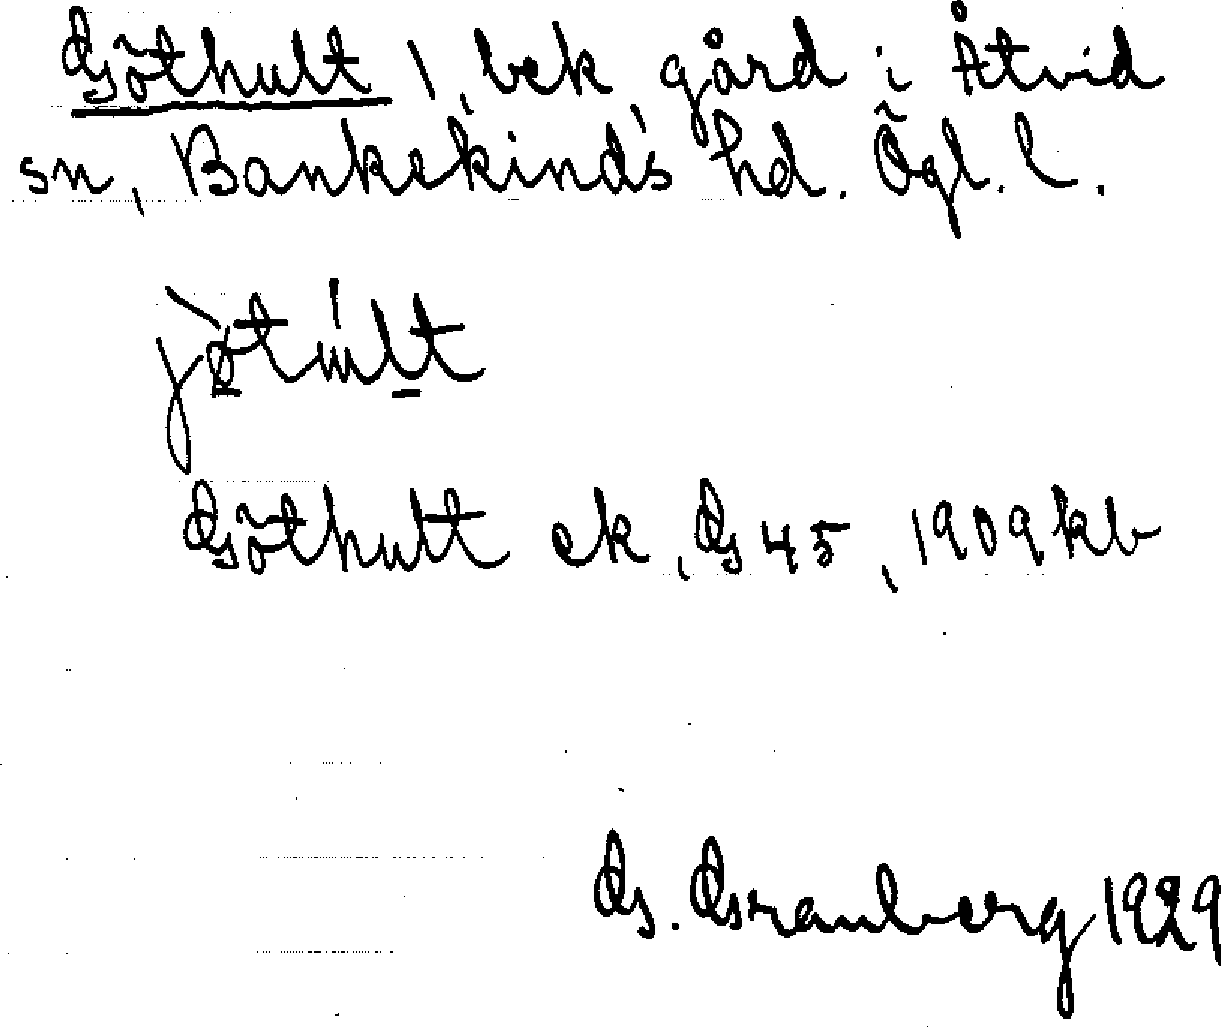 Göthult 1, bek gård i Åtvid
sn, Bankekind's hd. Ögl. l.
Göthult ek, G 45, 1909 kb
G. Granberg 1929